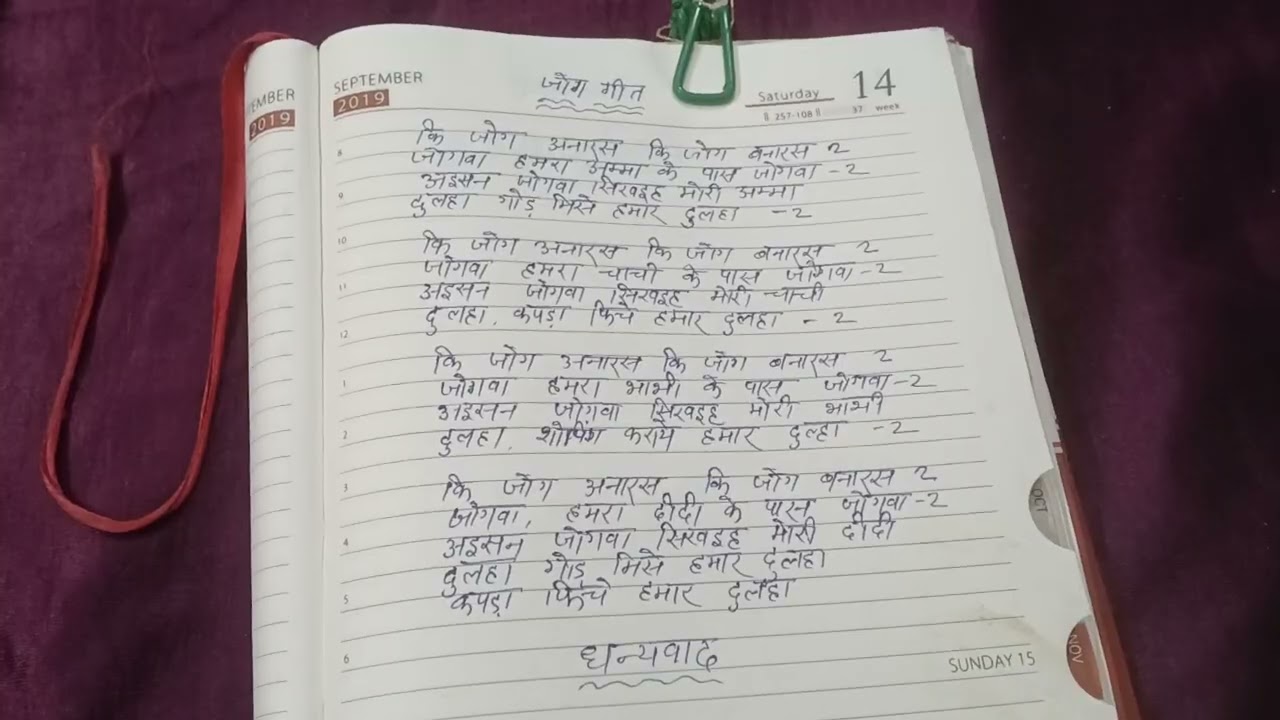 TEMBER
2019
SEPTEMBER
2019
जोग गीत
Saturday 14
|| 257-108 || 37 week
कि जोग अनारस कि जोग बनारस 2
जोगवा हमरा अम्मा के पास जोगवा -2
अइसन जोगवा सिखइह मोरी अम्मा
दुलहा गोड़ मिसे हमार दुलहा -2
कि जोग अनारस कि जोग बनारस 2
जोगवा हमरा चाची के पास जोगवा -2
अइसन जोगवा सिखइह मोरी चाची
दुलहा, कपड़ा फिंचे हमार दुलहा -2
कि जोग अनारस कि जोग बनारस 2
जोगवा हमरा भाभी के पास जोगवा -2
अइसन जोगवा सिखइह मोरी भाभी
दुलहा, शोपिंग कराये हमार दुल्हा -2
कि जोग अनारस कि जोग बनारस 2
जोगवा, हमरा दीदी के पास जोगवा -2
अइसन जोगवा सिखइह मोरी दीदी
दुलहा गोड़ मिसे हमार दुलहा
कपड़ा फिंचे हमार दुलहा
धन्यवाद
SUNDAY 15
8
9
10
11
12
1
2
3
4
5
6
OCT
NOV